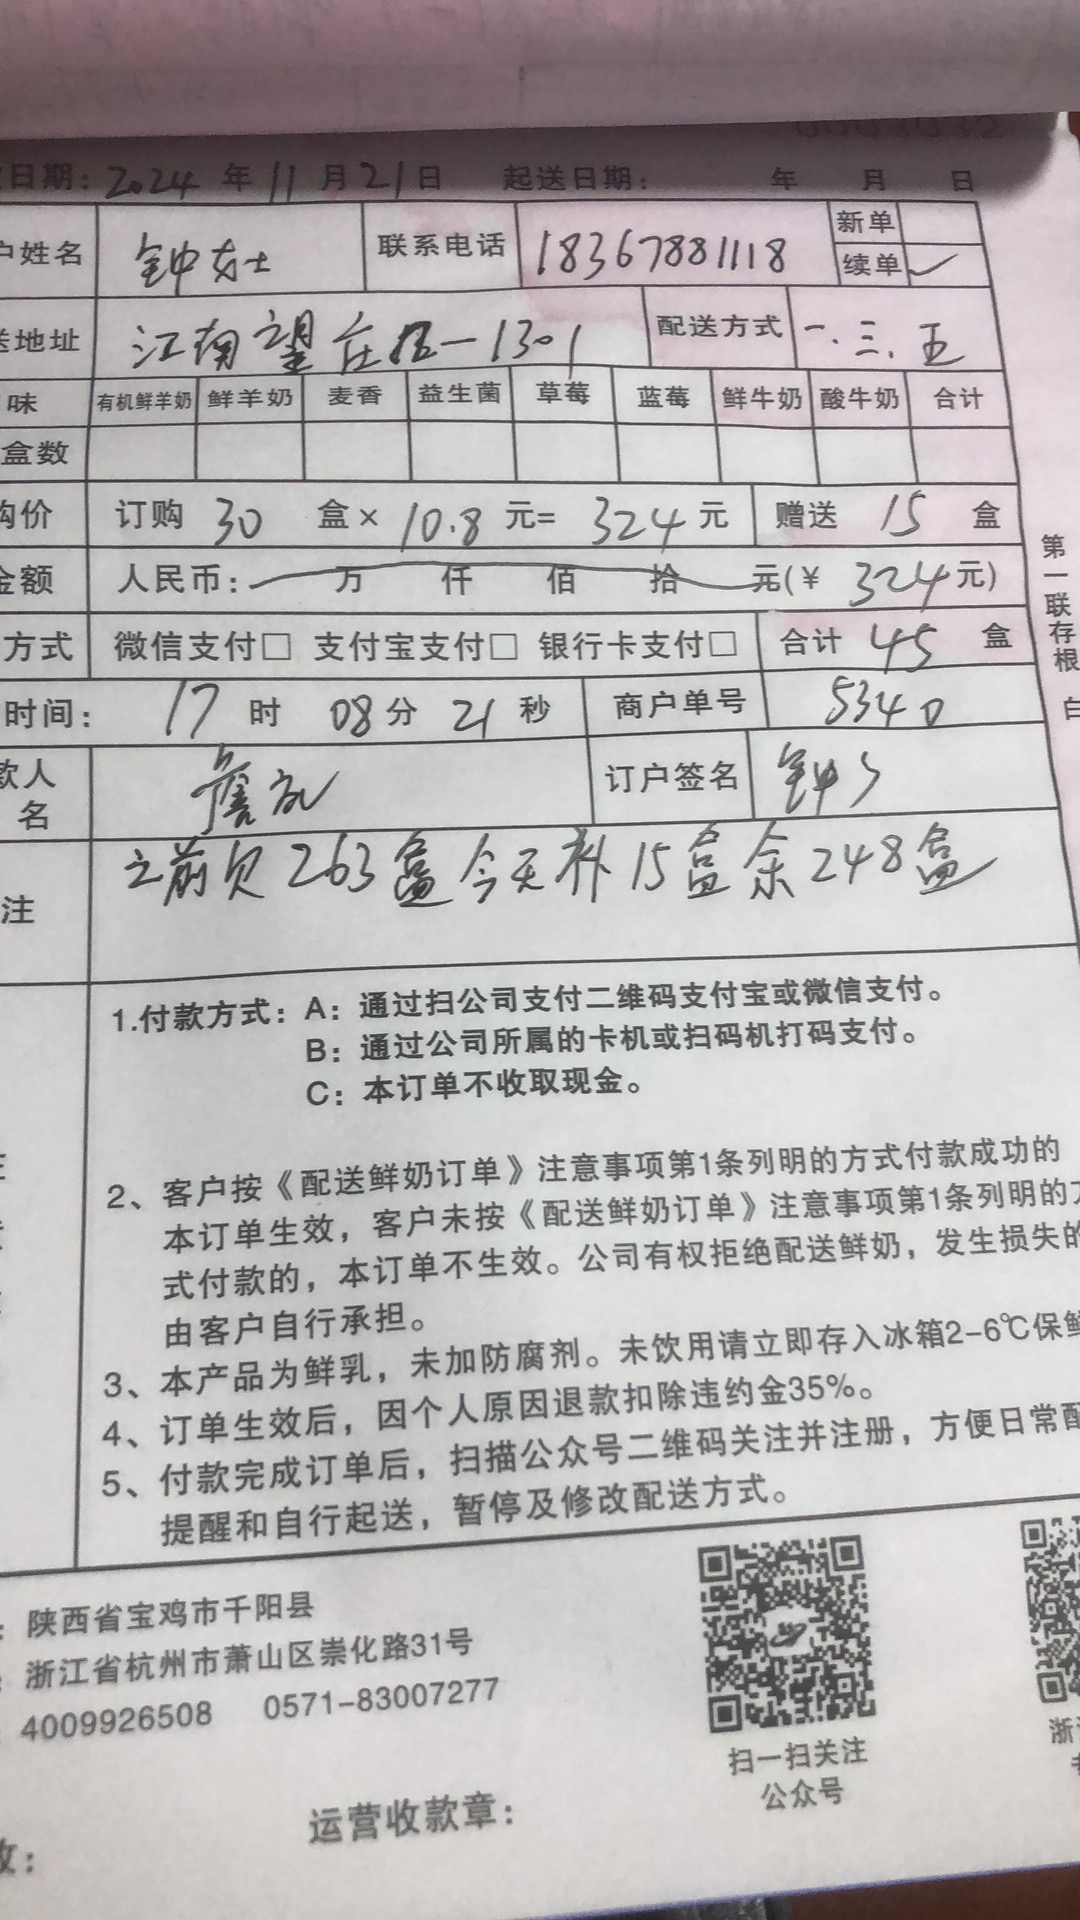 日期：2024年11月21日 起送日期： 年 月 日
户姓名 钟女士 联系电话 18367881118 新单
续单 ✓
送地址 江南望庄 一1301 配送方式 一.三.五
味 有机鲜羊奶 鲜羊奶 麦香 益生菌 草莓 蓝莓 鲜牛奶 酸牛奶 合计
盒数
购价 订购 30 盒× 10.8 元= 324 元 赠送 15 盒
金额 人民币： 万 仟 佰 拾 元(¥ 324元)
方式 微信支付□ 支付宝支付□ 银行卡支付□ 合计 45 盒
时间： 17 时 08 分 21 秒 商户单号 5340
款人 詹 订户签名 钟
名
注 之前欠263盒今天补15盒余248盒
第一联存根 白
1.付款方式：A：通过扫公司支付二维码支付宝或微信支付。
B：通过公司所属的卡机或扫码机打码支付。
C：本订单不收取现金。
2、客户按《配送鲜奶订单》注意事项第1条列明的方式付款成功的
本订单生效，客户未按《配送鲜奶订单》注意事项第1条列明的方
式付款的，本订单不生效。公司有权拒绝配送鲜奶，发生损失的
由客户自行承担。
3、本产品为鲜乳，未加防腐剂。未饮用请立即存入冰箱2-6℃保鲜
4、订单生效后，因个人原因退款扣除违约金35%。
5、付款完成订单后，扫描公众号二维码关注并注册，方便日常配
提醒和自行起送，暂停及修改配送方式。
：陕西省宝鸡市千阳县
：浙江省杭州市萧山区崇化路31号
4009926508 0571-83007277
扫一扫关注
公众号
浙
运营收款章：